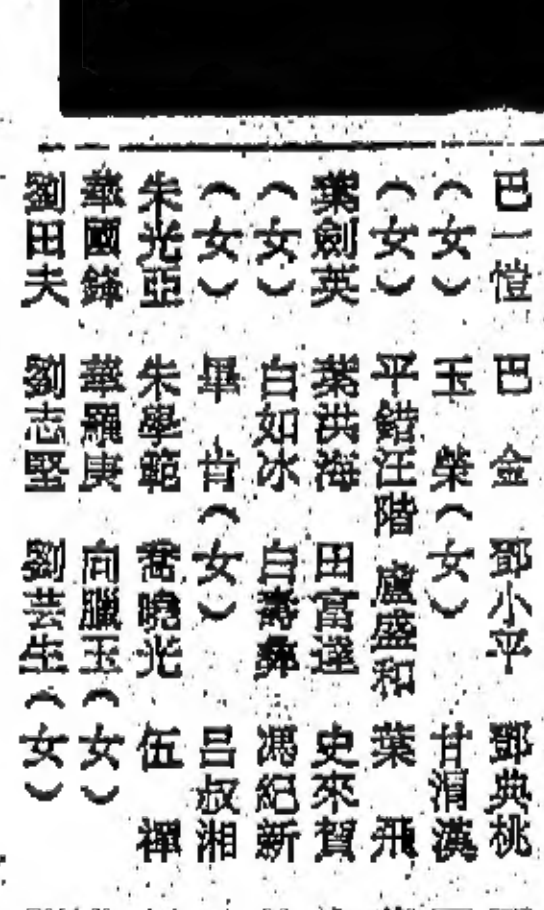 巴一愷 巴 金 鄧小平 鄧典桃
(女) 玉 榮(女) 甘渭漢
(女) 平錯汪階 盧盛和 葉 飛
葉劍英 葉洪海 田富達 史來賀
(女) 白如冰 白壽彝 馮紀新
(女) 畢 肯(女) 呂叔湘
朱光亞 朱學範 喬曉光 伍 禪
華國鋒 華羅庚 向臘玉(女)
劉田夫 劉志堅 劉芸生(女)